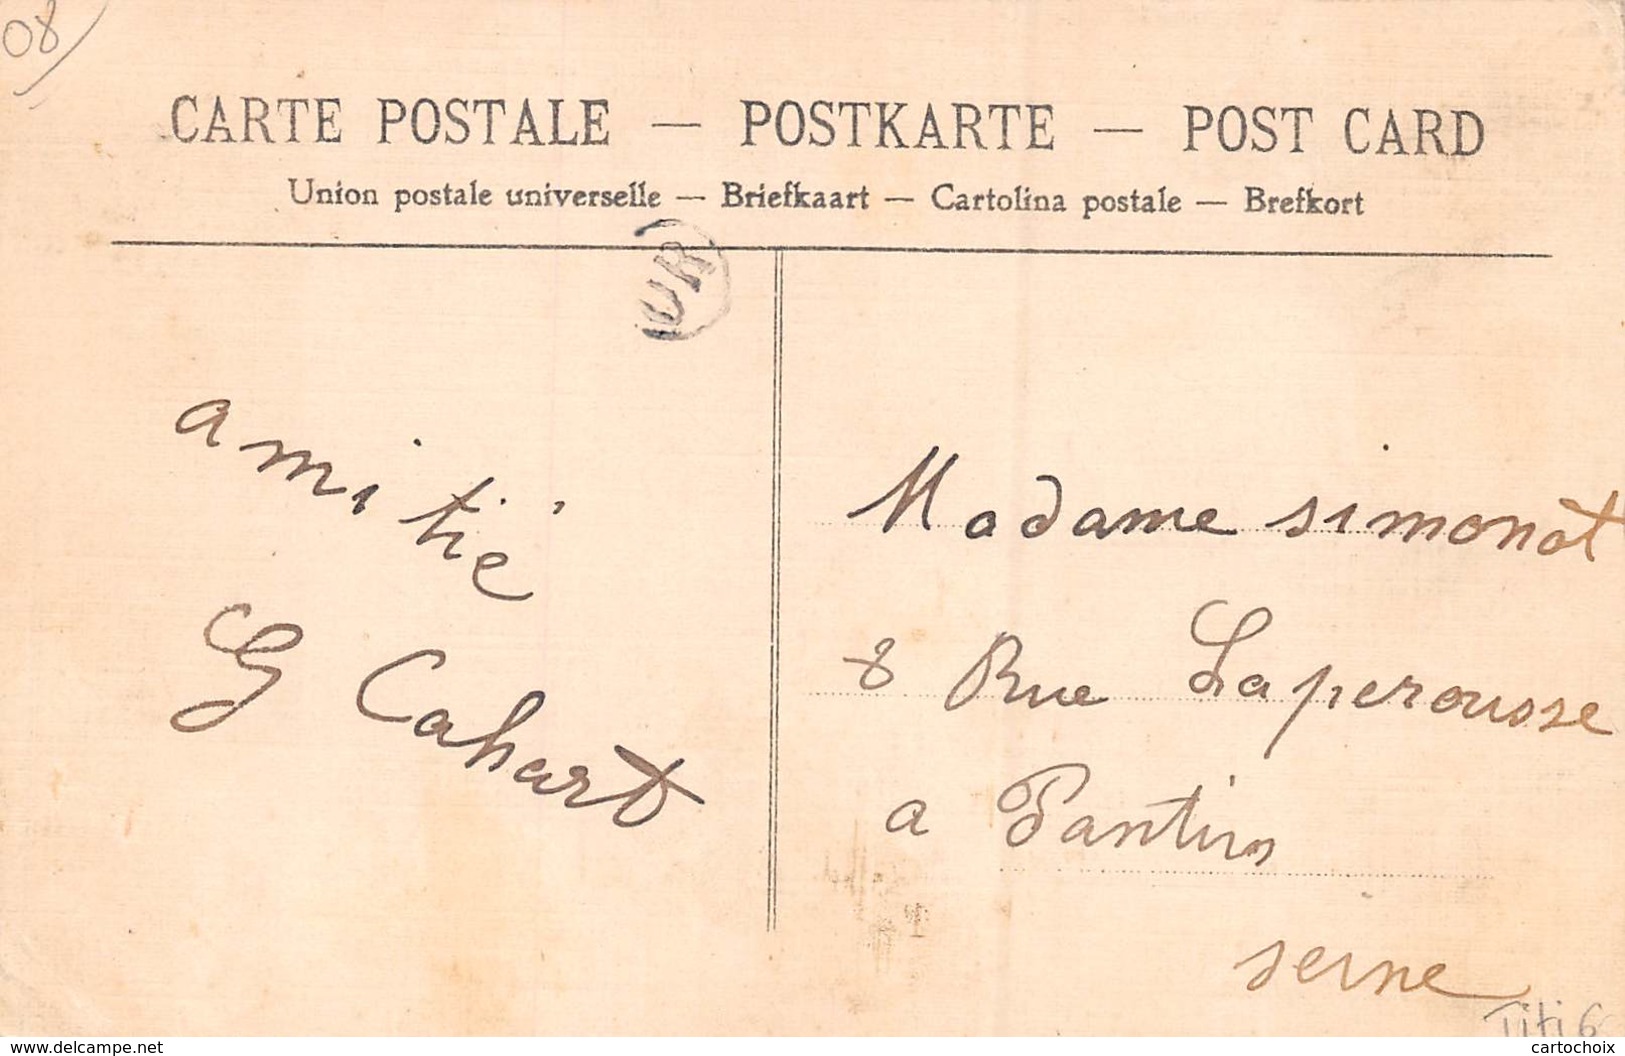 08
CARTE POSTALE — POSTKARTE — POST CARD
Union postale universelle — Briefkaart — Cartolina postale — Brefkort
OR
amitié
G Cahart
Madame simonot
8 Rue Laperousse
a Pantin
seine
Titi 6
www.delcampe.net
cartochoix